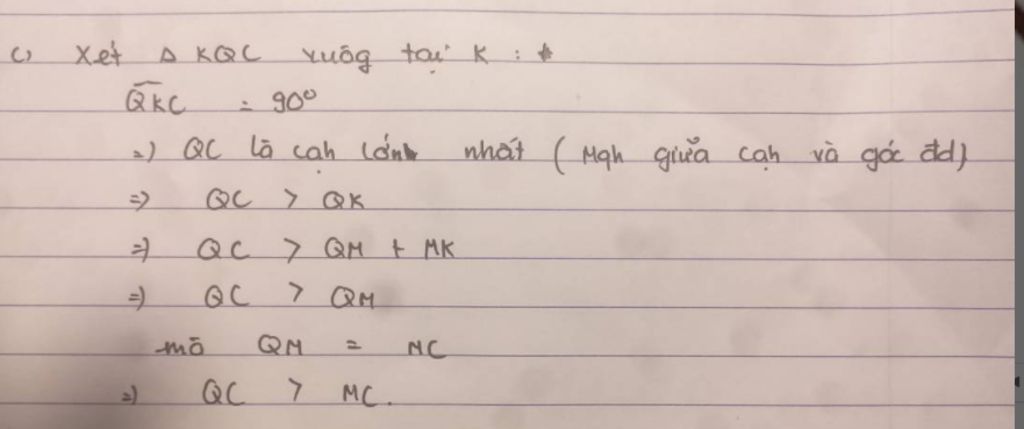 c) Xét Δ KQC vuông tại K :
QKC = 90°
=) QC là cạh lớn nhất ( Mqh giữa cạh và góc đd)
=> QC > QK
=) QC > QM + MK
=) QC > QM
mà QM = MC
=) QC > MC.